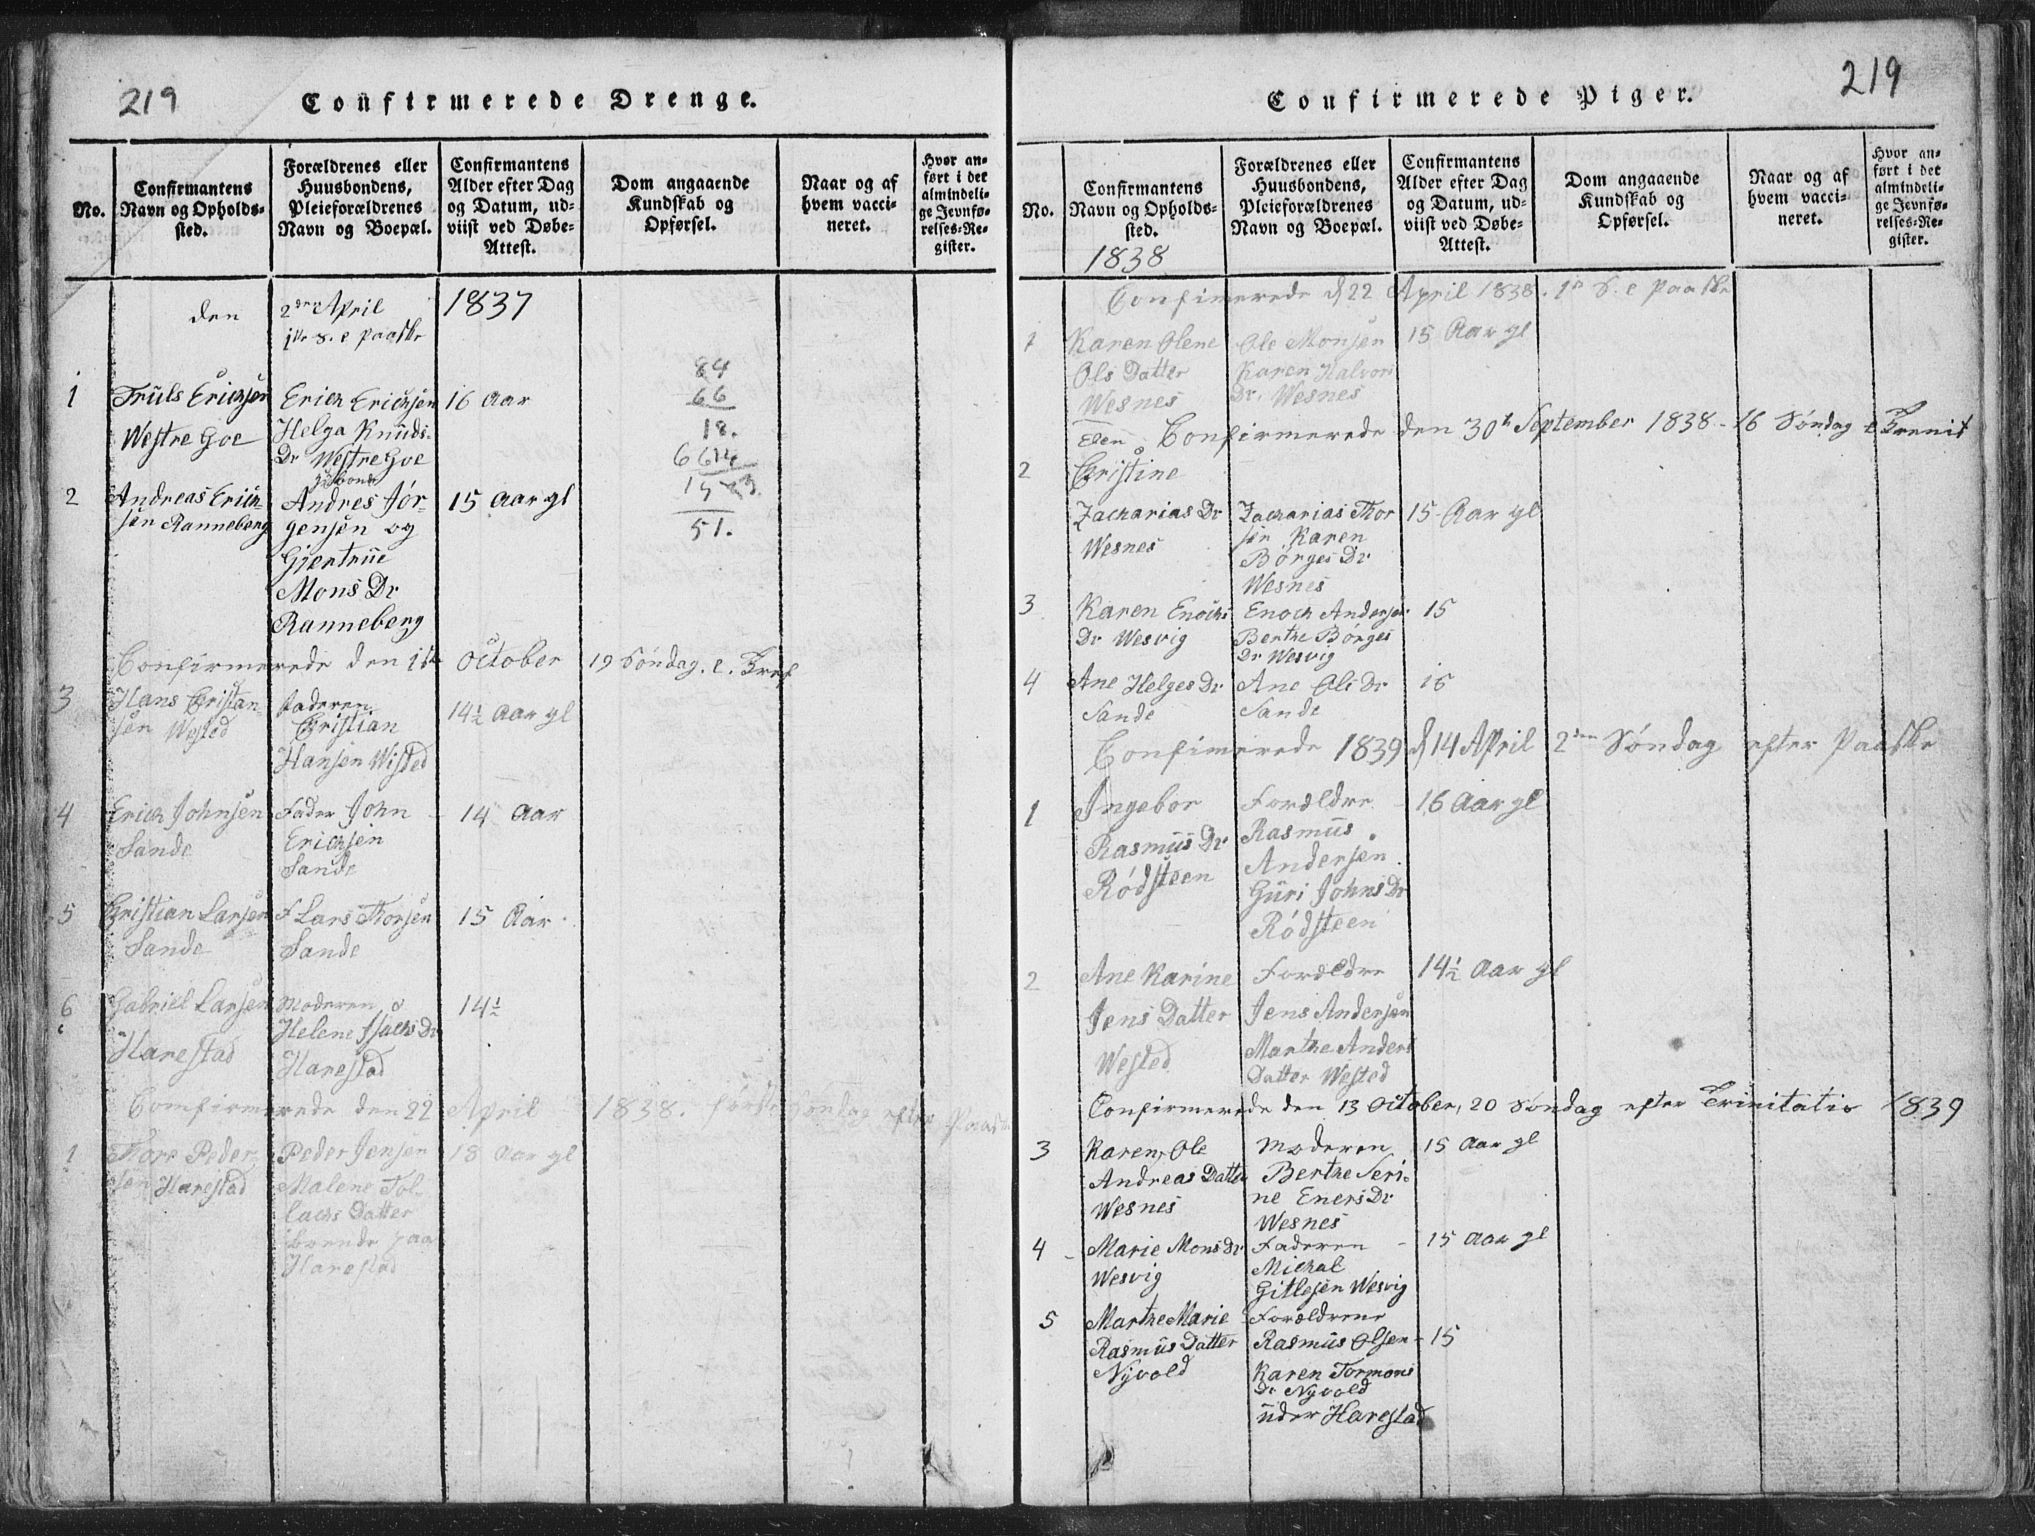 219
Confirmerede Drenge.
No.
Confirmantens
Navn og Opholds-
sted.
Forældrenes eller
Huusbondens,
Pleieforældrenes
Navn og Boepæl.
Confirmantens
Alder efter Dag
og Datum, ud-
viist ved Døbe-
Attest.
Dom angaaende
Kundskab og
Opførsel.
Naar og af
hvem vacci-
neret.
Hvor an-
ført i det
almindeli-
ge Jevnfø-
relses-Re-
gister.
den 2den April 1837
1ste S. e Paaske
1 Truls Erichsen
Westre Goe
Erich Erichsen
Helga Knuds-
Dr Westre Goe
16 Aar
84
66
18.
2 Andreas Erich-
sen Ranneberg
Andres Jör-
gensen og
Gjertrue
Mons Dr
Ranneberg
15 Aar gl
51.
Confirmerede den 1ste October 19 Söndag. e. Tref
3 Hans Cristan-
sen Wested
Faderen
Cristian
Hansen Wisted
14½ Aar gl
4 Erich Johnsen
Sande
Fader John
Erichsen
Sande
14 Aar
5 Cristian Larsen
Sande
F Lars Thorsen
Sande
15 Aar
6 Gabriel Larsen
Harestad
Moderen
Helene Isachs Dr
Harestad
14½
Comfirmerede den 22 April 1838. förste Söndag efter Paaske
1 Tore Peder
sen Harestad
Peder Jensen
Malene Tol-
lachs Datter
boende paa
Harestad
18 Aar gl
219
Confirmerede Piger.
No.
Confirmantens
Navn og Opholds-
sted.
1838
Forældrenes eller
Huusbondens,
Pleieforældrenes
Navn og Boepæl.
Confirmantens
Alder efter Dag
og Datum, ud-
viist ved Døbe-
Attest.
Dom angaaende
Kundskab og
Opførsel.
Naar og af
hvem vacci-
neret.
Hvor an-
ført i det
almindeli-
ge Jevnfø-
relses-Re-
gister.
Confimerede d 22 April 1838. 1ste S. e Paaske
1 Karen Olene
Ols Datter
Wesnes
Ole Monsen
Karen Halvor
Dr. Wesnes
15 Aar gl
Confirmerede den 30te September 1838 - 16 Söndag e Trenit
2 Elen
Cristine
Zacharias Dr
Wesnes
Zacharias Thor
sen Karen
Börges Dr
Wesnes
15 Aar gl
3 Karen Enochs
Dr Wesvig
Enoch Andersen
Berthe Börges
Dr Wesvig
15
4 Ane Helges Dr
Sande
Ane Ols Dr
Sande
Confimerede 1839 d 14 April 2den Söndag efter Paaske
1 Ingebor
Rasmus Dr
Rödsteen
Forældre
Rasmus
Andersen
Guri Johns Dr
Rödsteen
16 Aar gl
2 Ane Karine
Jens Datter
Wested
Forældre
Jens Andersen
Marthe Anders
Datter Wested
14½ Aar gl
Confirmerede den 13 October, 20 Söndag efter Trinitatis 1839
3 Karen Ole
Andreas Datter
Wesnes
Moderen
Berthe Seri-
ne Eners Dr
Wesnes
15 Aar gl
4 Marie Mons Dr
Wesvig
Faderen
Michal
Gitlesen Wesvig
15 Aar gl
5 Marthe Marie
Rasmus Datter
Nyvold
Forældrene
Rasmus Olsen
Karen Tormons
Dr Nyvold
uder Harestad
15